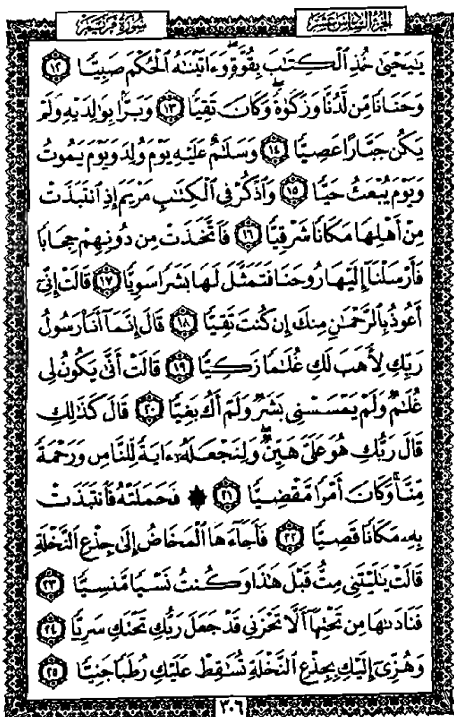 الجزء السادس عشر
سورة مريم
يَٰيَحْيَىٰ خُذِ ٱلْكِتَٰبَ بِقُوَّةٍ وَءَاتَيْنَٰهُ ٱلْحُكْمَ صَبِيًّا ١٢
وَحَنَانًا مِّن لَّدُنَّا وَزَكَوٰةً وَكَانَ تَقِيًّا ١٣ وَبَرًّۢا بِوَٰلِدَيْهِ وَلَمْ
يَكُن جَبَّارًا عَصِيًّا ١٤ وَسَلَٰمٌ عَلَيْهِ يَوْمَ وُلِدَ وَيَوْمَ يَمُوتُ
وَيَوْمَ يُبْعَثُ حَيًّا ١٥ وَٱذْكُرْ فِي ٱلْكِتَٰبِ مَرْيَمَ إِذِ ٱنتَبَذَتْ
مِنْ أَهْلِهَا مَكَانًا شَرْقِيًّا ١٦ فَٱتَّخَذَتْ مِن دُونِهِمْ حِجَابًا
فَأَرْسَلْنَآ إِلَيْهَا رُوحَنَا فَتَمَثَّلَ لَهَا بَشَرًا سَوِيًّا ١٧ قَالَتْ إِنِّىٓ
أَعُوذُ بِٱلرَّحْمَٰنِ مِنكَ إِن كُنتَ تَقِيًّا ١٨ قَالَ إِنَّمَآ أَنَا۠ رَسُولُ
رَبِّكِ لِأَهَبَ لَكِ غُلَٰمًا زَكِيًّا ١٩ قَالَتْ أَنَّىٰ يَكُونُ لِى
غُلَٰمٌ وَلَمْ يَمْسَسْنِى بَشَرٌ وَلَمْ أَكُ بَغِيًّا ٢٠ قَالَ كَذَٰلِكِ
قَالَ رَبُّكِ هُوَ عَلَىَّ هَيِّنٌ وَلِنَجْعَلَهُۥٓ ءَايَةً لِّلنَّاسِ وَرَحْمَةً
مِّنَّا وَكَانَ أَمْرًا مَّقْضِيًّا ٢١ ۞ فَحَمَلَتْهُ فَٱنتَبَذَتْ
بِهِۦ مَكَانًا قَصِيًّا ٢٢ فَأَجَآءَهَا ٱلْمَخَاضُ إِلَىٰ جِذْعِ ٱلنَّخْلَةِ
قَالَتْ يَٰلَيْتَنِى مِتُّ قَبْلَ هَٰذَا وَكُنتُ نَسْيًا مَّنسِيًّا ٢٣
فَنَادَىٰهَا مِن تَحْتِهَآ أَلَّا تَحْزَنِى قَدْ جَعَلَ رَبُّكِ تَحْتَكِ سَرِيًّا ٢٤
وَهُزِّىٓ إِلَيْكِ بِجِذْعِ ٱلنَّخْلَةِ تُسَٰقِطْ عَلَيْكِ رُطَبًا جَنِيًّا ٢٥
٣٠٦